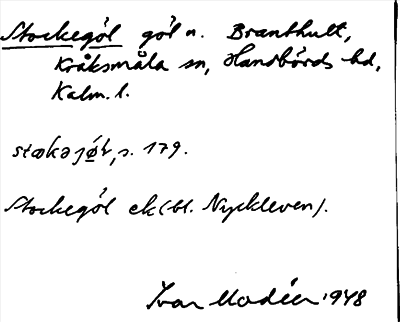 Stockegöl göl n. Branthult,
Kråksmåla sn, Handbörds hd,
Kalm. l.
stɷkəjø̀ɫ, s. 179.
Stockegöl ek(bl. Nyckleven).
Ivar Modéer 1948